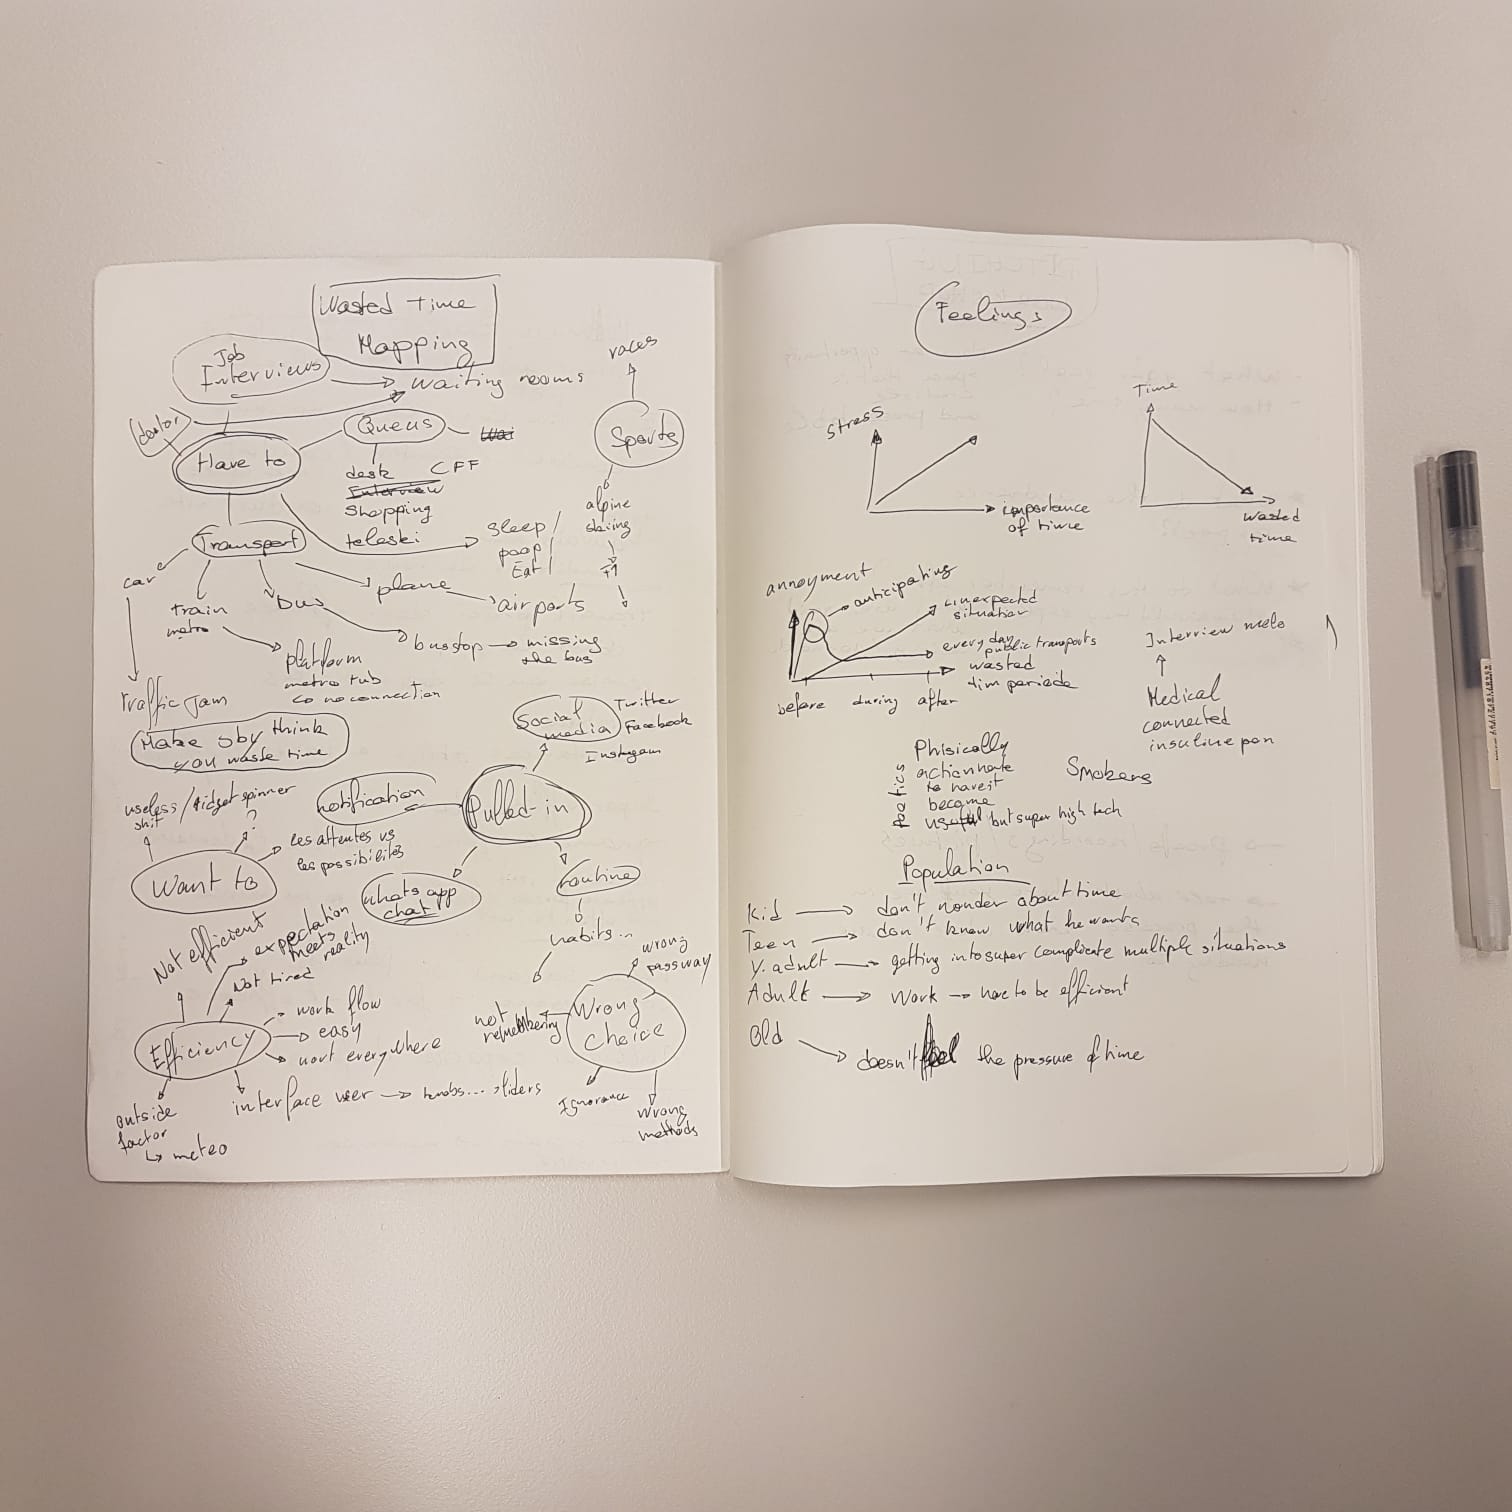 Wasted Time
Mapping
Job
Interviews
waiting rooms
doctor
Have to
Queus
desk CFF
Interview
Shopping
teleski
races
Sports
alpine
skiing
F1
Transport
sleep /
poop
Eat /
car
train
metro
bus
plane
airports
platform
metro hub
co no connection
bus stop
missing
the bus
Traffic Jam
Make sby think
you waste time
Social
media
Twitter
Facebook
Instagram
useless / fidget spinner
shit
?
notification
Pulled in
les attentes vs
les possibilités
Want to
whats app
chat
routine
habits...
Not efficient
expectation
meets
reality
Not tired
wrong
passway
work flow
easy
Efficiency
not
remembering
Wrong
choice
interface user
knobs... sliders
outside
factor
meteo
Ignorance
wrong
methods
Feelings
stress
importance
of time
Time
wasted
time
annoyment
anticipating
unexpected
situation
every day
public transports
wasted
tim periode
before during after
Interview
Medical
connected
insuline pen
Phisically
action
to have it
become
but super high tech
Smokers
Population
Kid don't about time
Teen don't know what he wants
Y. adult getting into super complicate multiple situations
Adult Work have to be efficient
Old
doesn't feel the pressure of time